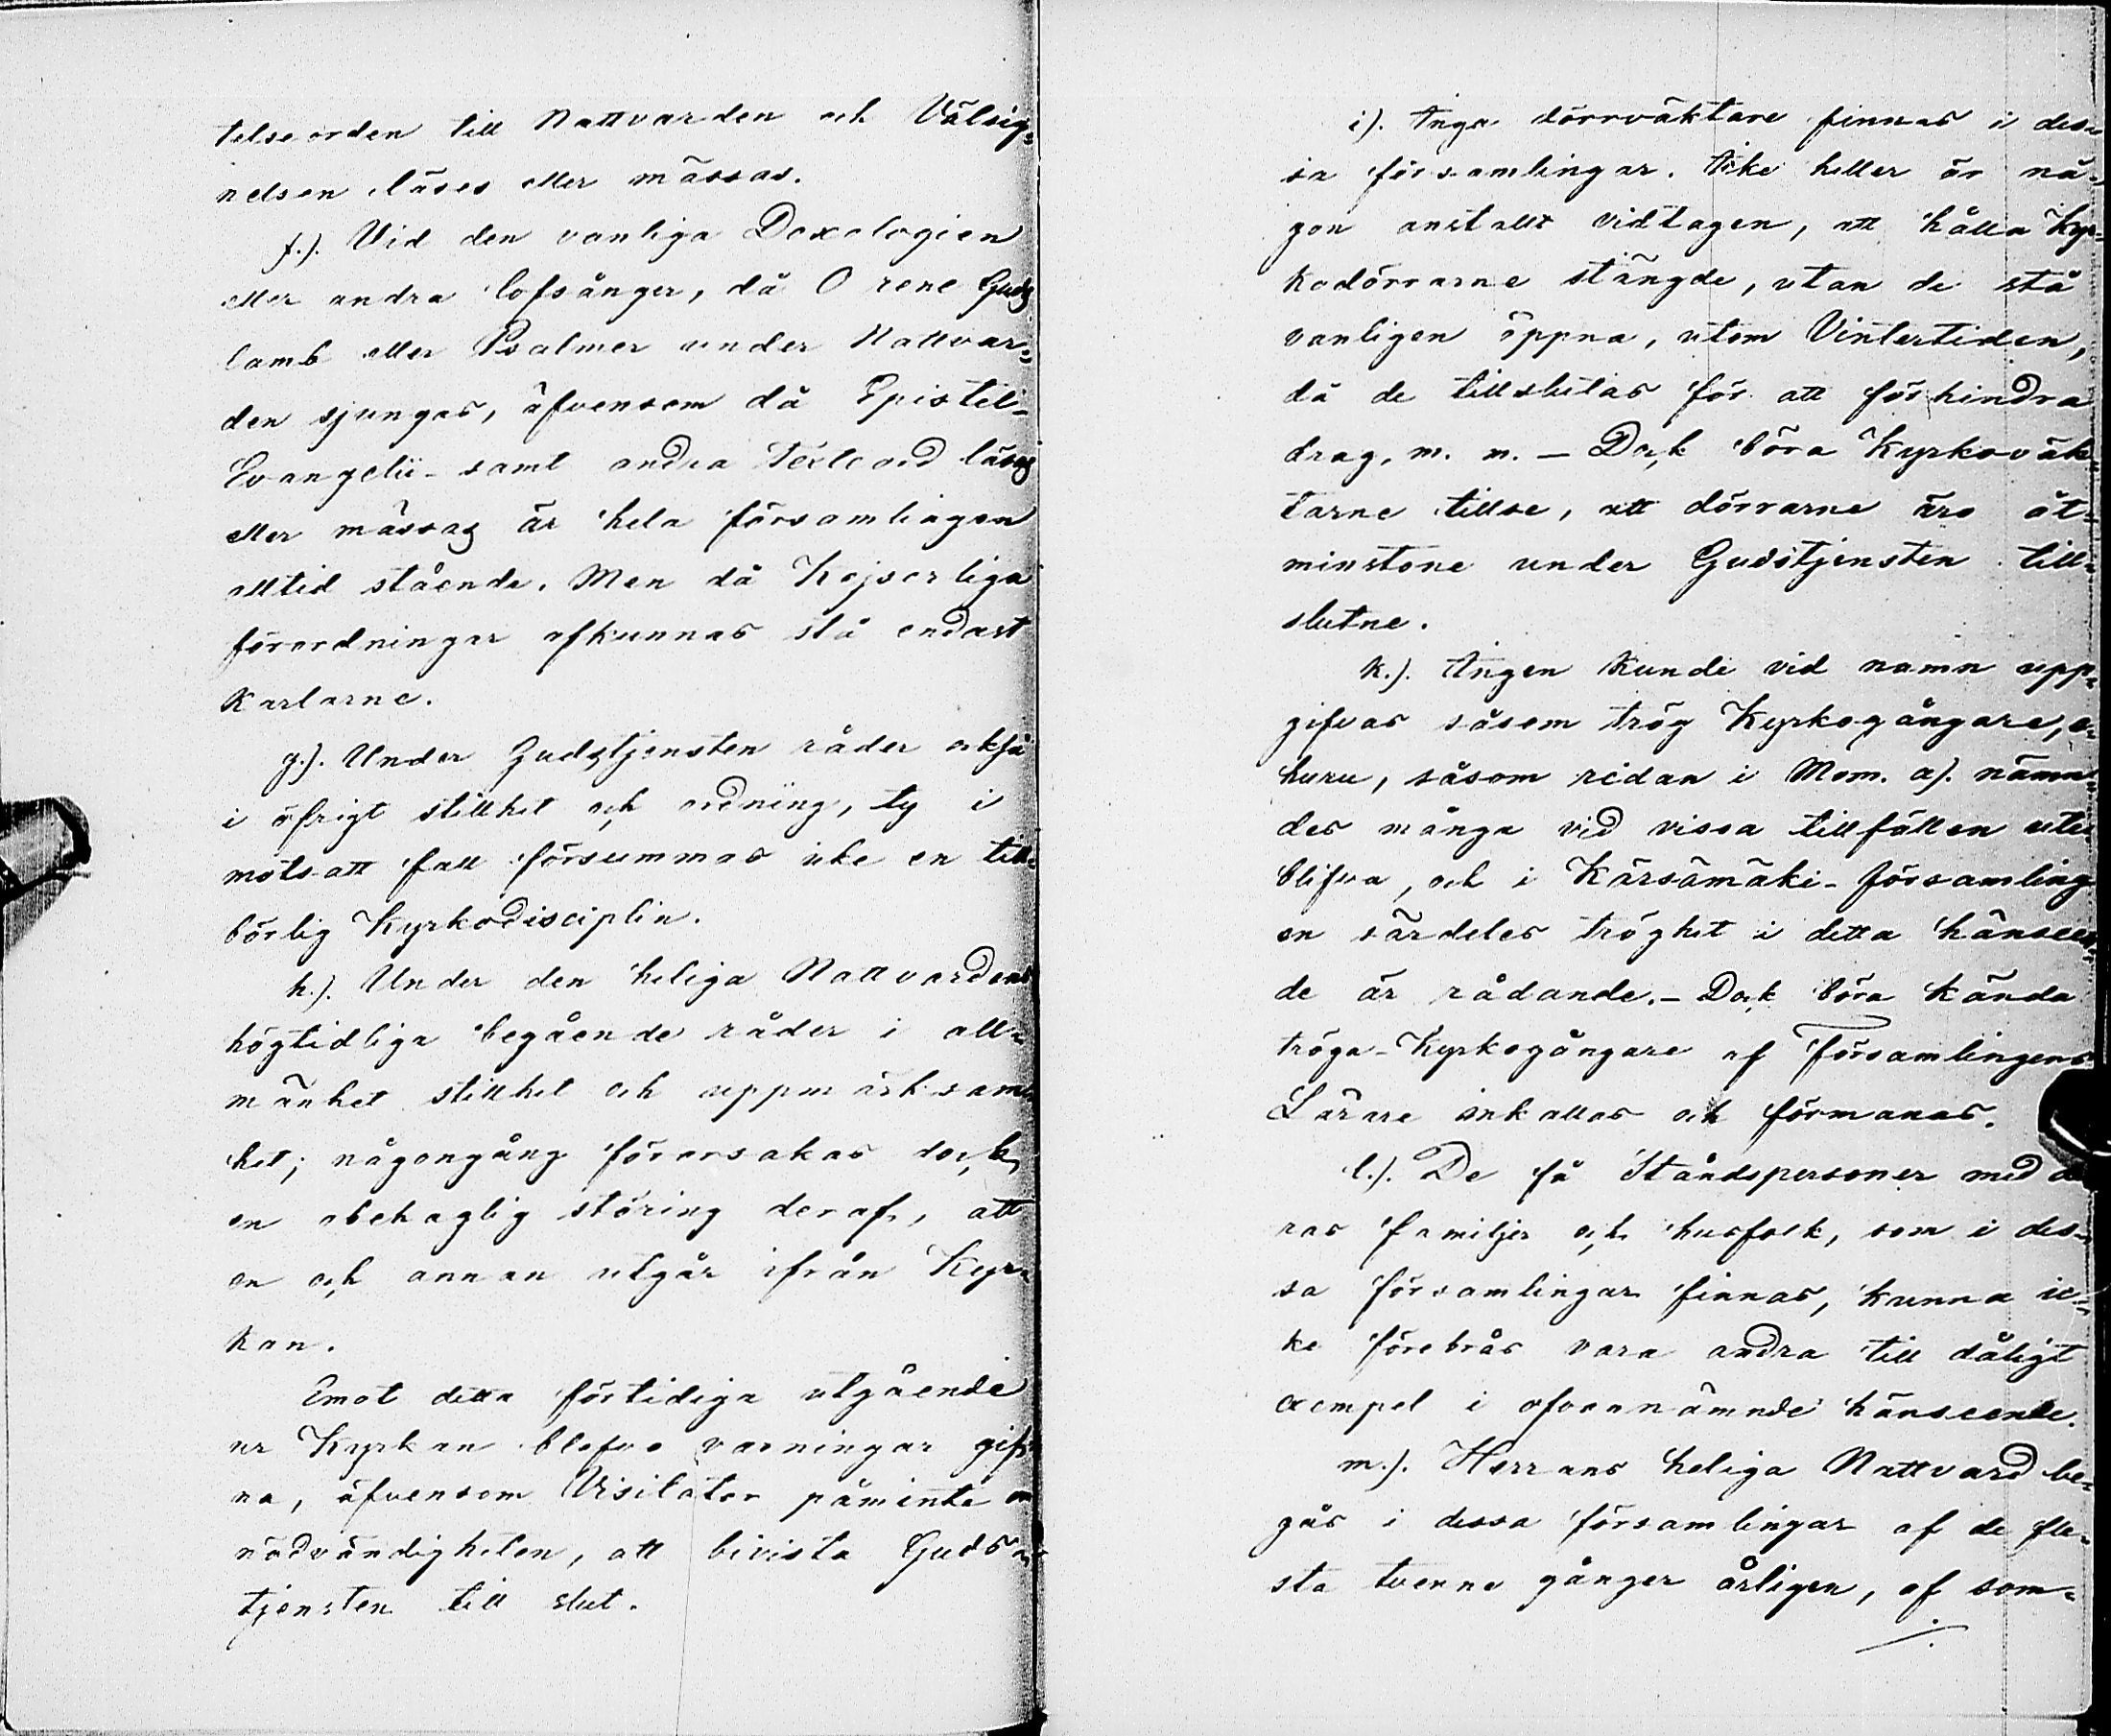 telseorden till Nattvarden och Välsig=
nelsen läses eller mässas.
f.). Vid den vanliga Doxologien
eller andra lofsånger, då O rene Guds
lamb eller Psalmer under Nattvar=
den sjungas, äfvensom då Epistel-
Evangelii- samt andra Texteord läsas
eller mässas är hela församlingen
alltid stående. Men då Kejserliga
förordningar afkunnas stå endast
Karlarne.
g.). Under Gudstjensten råder också
i öfrigt stillhet och ordning, ty i
motsatt fall försummas icke en till=
börlig Kyrkodisciplin.
h.). Under den heliga Nattvardens
högtidliga begående råder i all=
mänhet stillhet och uppmärksam=
het; någongång förorsakas dock
en obehaglig störing deraf, att
en och annan utgår ifrån Kyr=
kan.
Emot detta förtidiga utgående
ur Kyrkan blefvo varningar gif=
na, äfvensom Visitator påminte om
nödvändigheten, att bivista Guds=
tjensten till slut.
i). Inga dörrväktare finnas i des=
sa församlingar. Icke heller är nå=
gon anstallt vidtagen, att hålla Kyr=
kodörrarne stängde, utan de stå
vanligen öppna, utom Vintertiden,
då de tillslutas för att förhindra
drag, m. m. — Dock böra Kyrkoväk=
tarne tillse, att dörrarne äro åt=
minstone under Gudstjensten till=
slutne.
k.). Ingen kunde vid namn upp=
gifvas såsom trög Kyrkogångare, e=
huru, såsom redan i Mom. a). nämn
des många vid vissa tillfällen ute=
blifva, och i Kärsämäki-församling
en särdeles tröghet i detta hänseen=
de är rådande. – Dock böra kända
tröga-Kyrkogångare af Församlingens
Lärare inkallas och förmanas.
l.). De få Ståndspersoner med de
ras familjer och husfolk, som i des=
sa församlingar finnas, kunna ic=
ke förebrås vara andra till dåligt
exempel i ofvannämnde hänseende.
m.). Herrans heliga Nattvard be=
gås i dessa församlingar af de fle=
sta tvenne gånger årligen, af som=